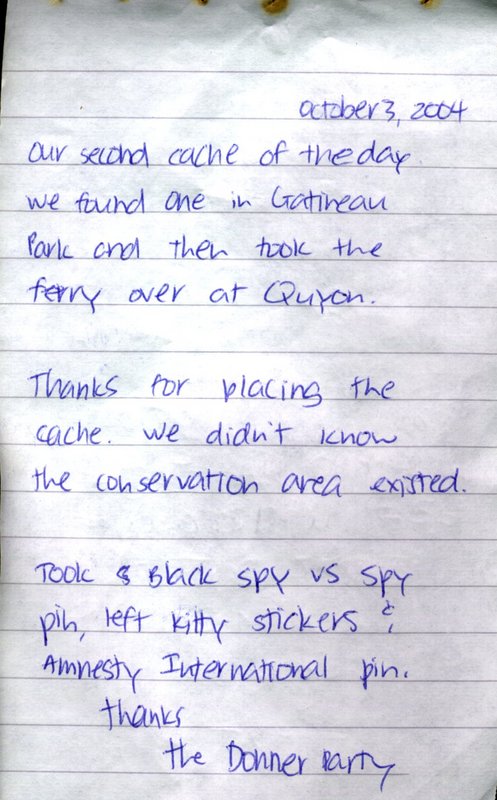 October 3, 2004
Our second cache of the day.
We found one in Gatineau
Park and then took the
ferry over at Quyon.
Thanks for placing the
cache. We didn't know
the conservation area existed.
Took Black Spy vs Spy
pin, left kitty stickers &
Amnesty International pin.
thanks
the Donner Party